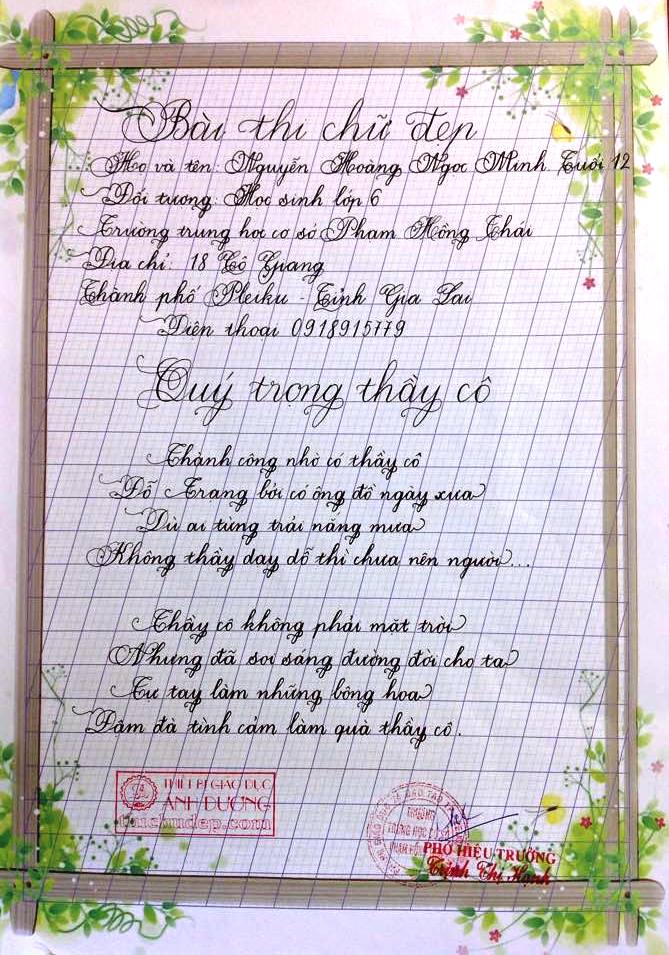 Bài thi chữ đẹp
Họ và tên: Nguyễn Hoàng Ngọc Minh Tuổi 12
Đối tượng: Học sinh lớp 6
Trường trung học cơ sở Phạm Hồng Thái
Địa chỉ: 18 Cô Giang
Thành phố Pleiku - Tỉnh Gia Lai
Điện thoại 0918915779
Quý trọng thầy cô
Thành công nhờ có thầy cô
Đỗ Trạng bởi có ông đồ ngày xưa
Dù ai từng trải nắng mưa
Không thầy dạy dỗ thì chưa nên người...
Thầy cô không phải mặt trời
Nhưng đã soi sáng đường đời cho ta
Tự tay làm những bông hoa
Đậm đà tình cảm làm quà thầy cô.
THIẾT BỊ GIÁO DỤC
ÁNH DƯƠNG
thichudep.com
TRƯỜNG
TRUNG HỌC CƠ SỞ
PHÓ HIỆU TRƯỞNG
Trịnh Thị Hạnh